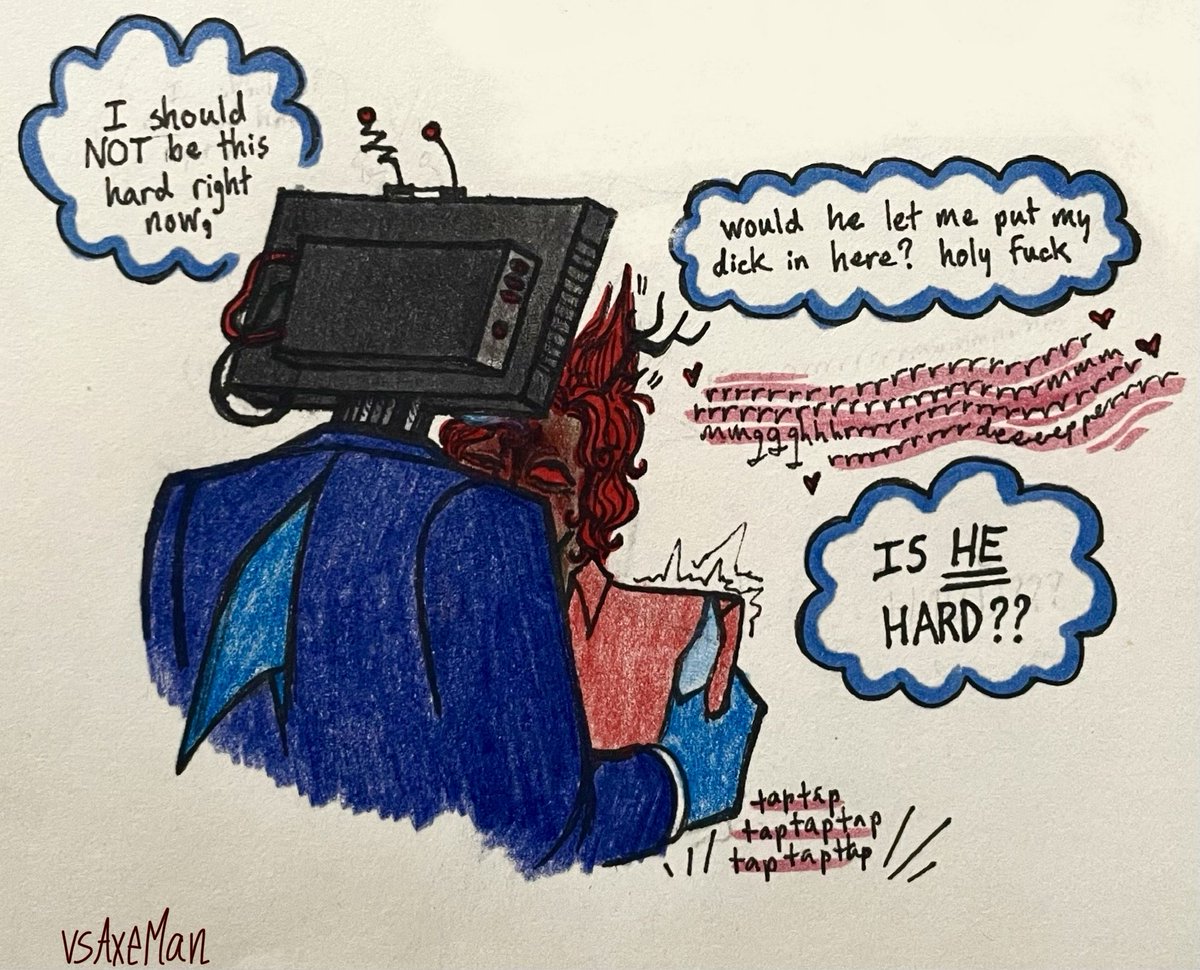 I should
NOT be this
hard right
now,
would he let me put my
dick in here? holy fuck
rrrrrrr r rrrrrrrrrrrrrrrr
rrrrrrrrrrrrrrrrrrrrrrrmmm
mmggghhhrrrrrrrrrrrrrrrrrr
rrrrrrrrrr deeeepperrrr
IS HE
HARD??
taptap
taptaptap
taptaptap
vsAxeMan